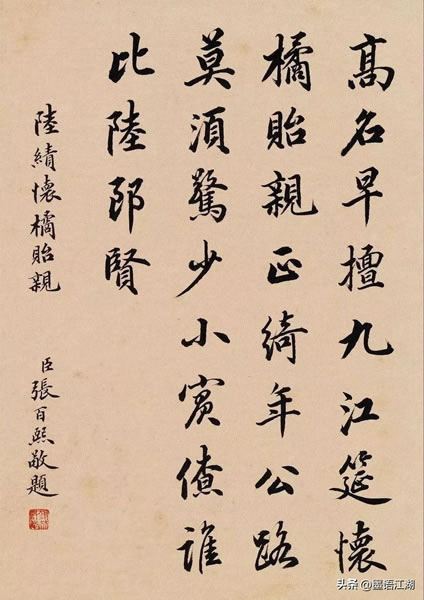 高名早擅九江筵懷
橘貽親正綺年公路
莫須驚少小賓僚誰
比陸郎賢
陸績懷橘貽親
臣張百熙敬題
头条@墨语江湖